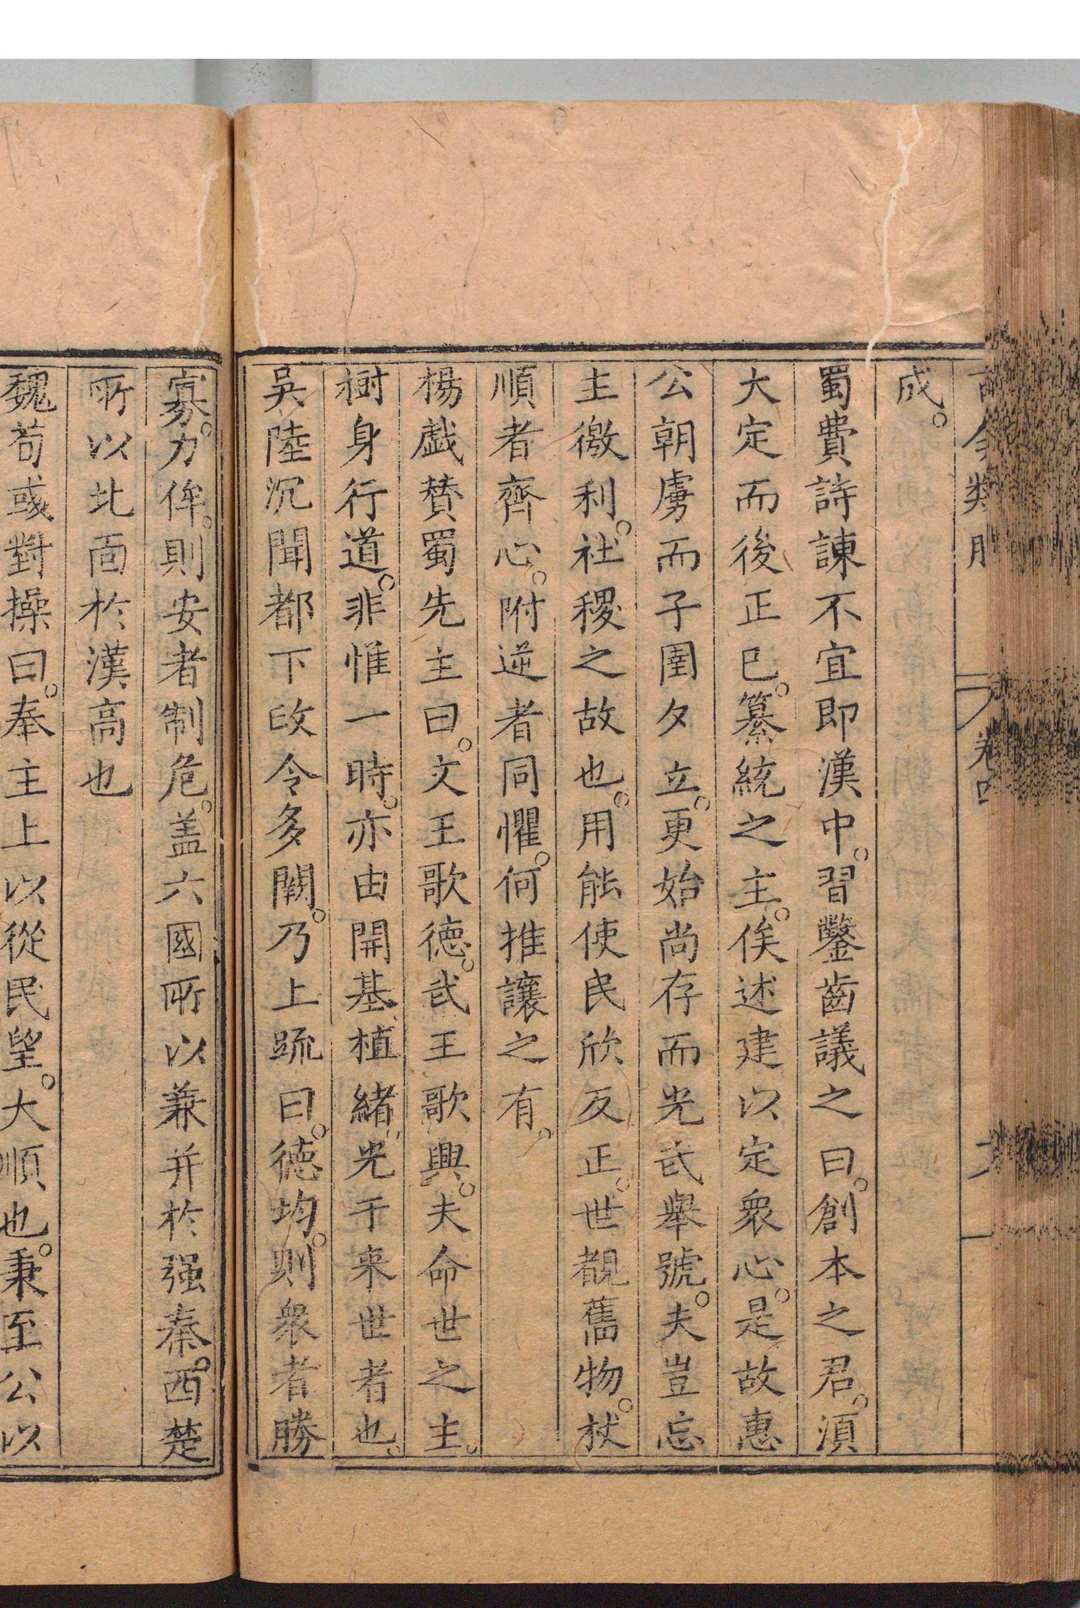 古今類腴 卷四
成。
蜀費詩諫不宜即漢中。習鑿齒議之曰。創本之君。須
大定而後正已。纂統之主。俟述建以定衆心。是故惠
公朝虜而子圉夕立。更始尚存而光武舉號。夫豈忘
主徼利。社稷之故也。用能使民欣反正。世覩舊物。杖
順者齊心。附逆者同懼。何推讓之有。
楊戯賛蜀先主曰。文王歌德。武王歌興。夫命世之主。
樹身行道。非惟一時。亦由開基植緒。光于来世者也。
吳陸沉聞都下政令多闕。乃上疏曰。德均。則衆者勝
寡。力侔。則安者制危。盖六國所以兼并於强秦。西楚
所以北面於漢高也
魏荀彧對操曰。奉主上以從民望。大順也。秉至公以